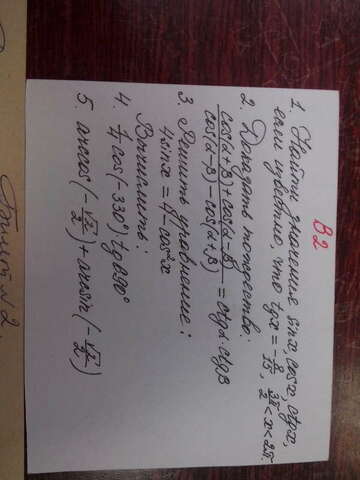 В2
1. Найти значения sin x, cos x, ctg x,
если известно, что tg x = -8/15, 3π/2 < x < 2π.
2. Доказать тождество:
cos(α+β)+cos(α-β) / cos(α-β)-cos(α+β) = ctgα·ctgβ
3. Решить уравнение:
4sinx = 4 - cos²x
Вычислить:
4. 1/4 cos(-330°) tg 690°
5. arccos(-√3/2) + arcsin(-√2/2)
Билет №2.